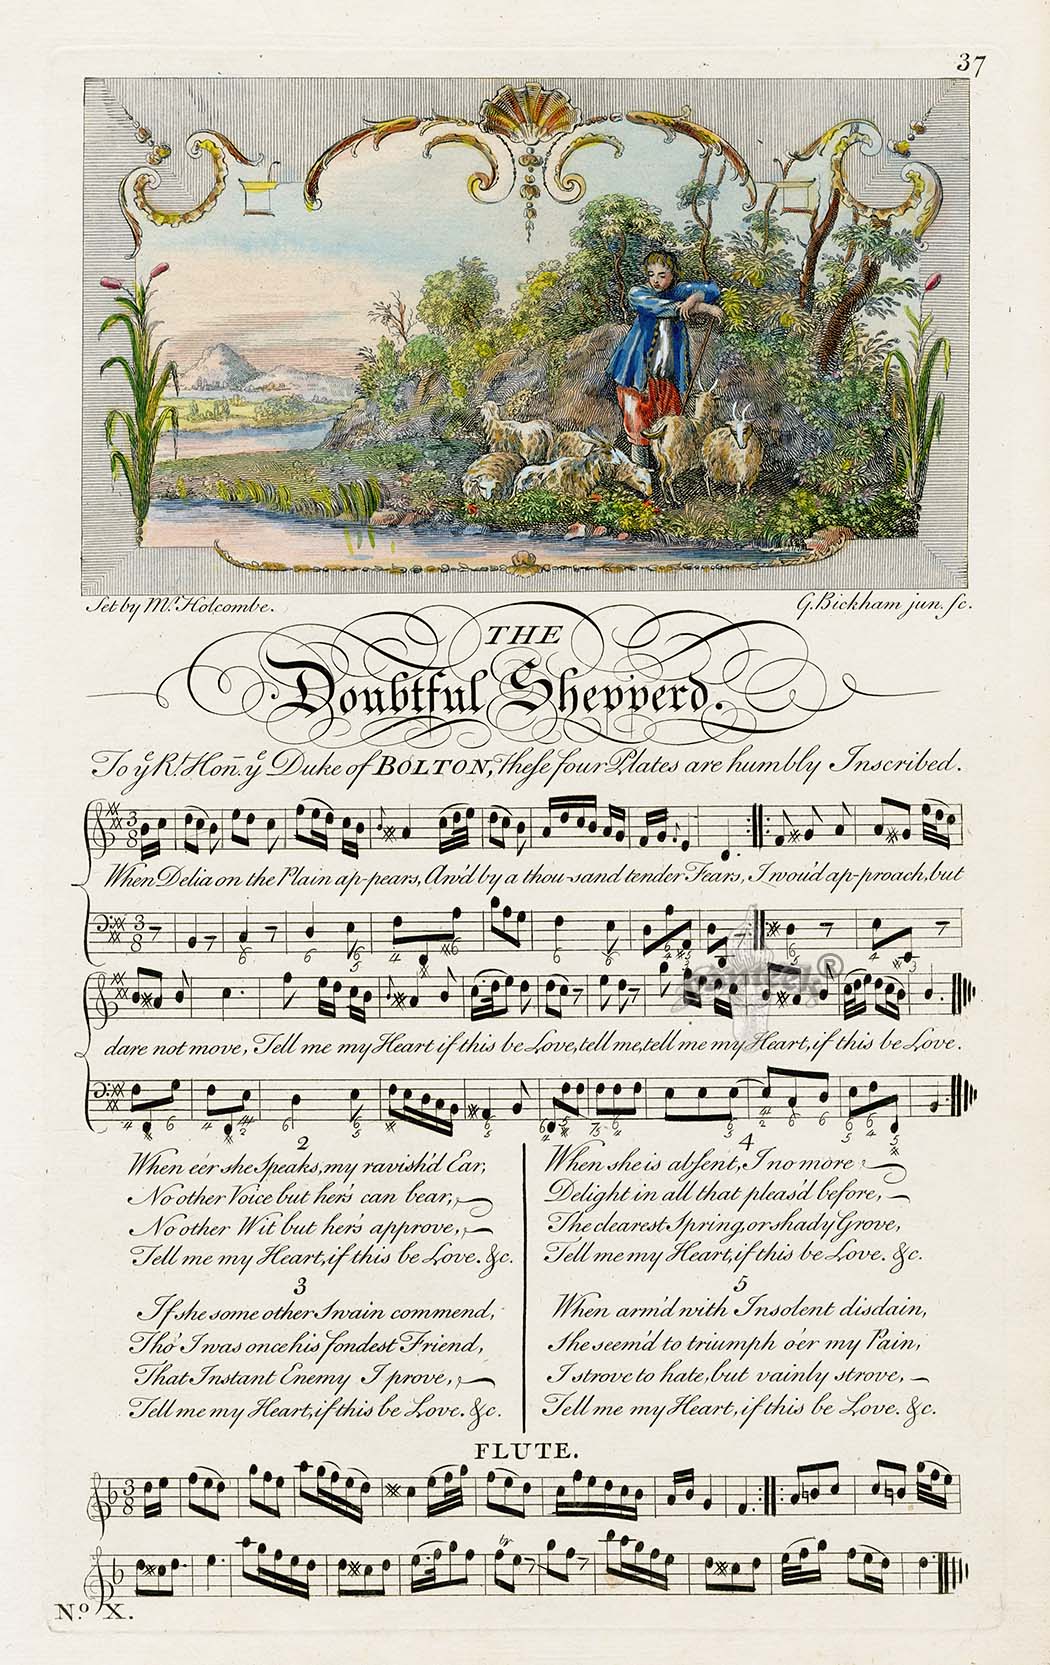 37
Set by Mr. Holcombe.
G. Bickham jun. sc.
THE
Doubtful Shepperd.
To ye Rt. Honn. ye Duke of BOLTON, these four Plates are humbly Inscribed.
When Delia on the Plain ap-pears, Aw'd by a thou-sand tender Fears, I wou'd ap-proach, but
dare not move, Tell me my Heart if this be Love, tell me, tell me my Heart, if this be Love.
2
When e'er she speaks, my ravish'd Ear,
No other Voice but her's can bear,
No other Wit but her's approve,
Tell me my Heart, if this be Love. &c.
3
If she some other Swain commend,
Tho' I was once his fondest Friend,
That Instant Enemy I prove,
Tell me my Heart, if this be Love. &c.
4
When she is absent, I no more
Delight in all that pleas'd before,
The clearest Spring, or shady Grove,
Tell me my Heart, if this be Love. &c.
5
When arm'd with Insolent disdain,
She seem'd to triumph o'er my Pain,
I strove to hate, but vainly strove,
Tell me my Heart, if this be Love. &c.
FLUTE.
No. X.